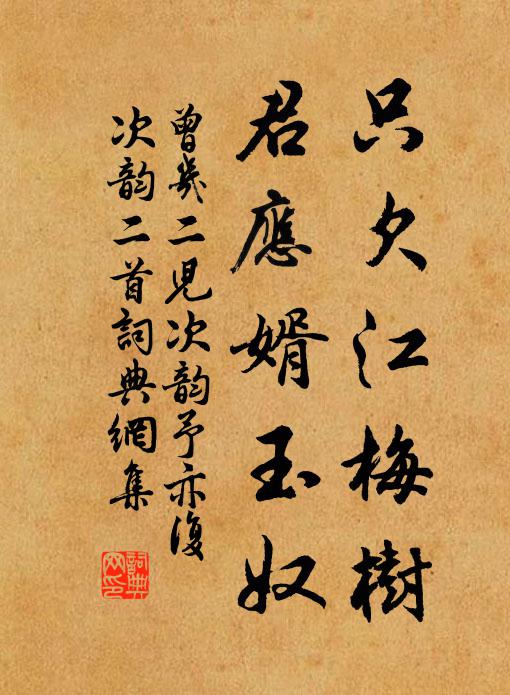 只欠江梅樹
君應婿玉奴
曾幾二児次韵予亦復
次韵二首詞典網集
詞典网印